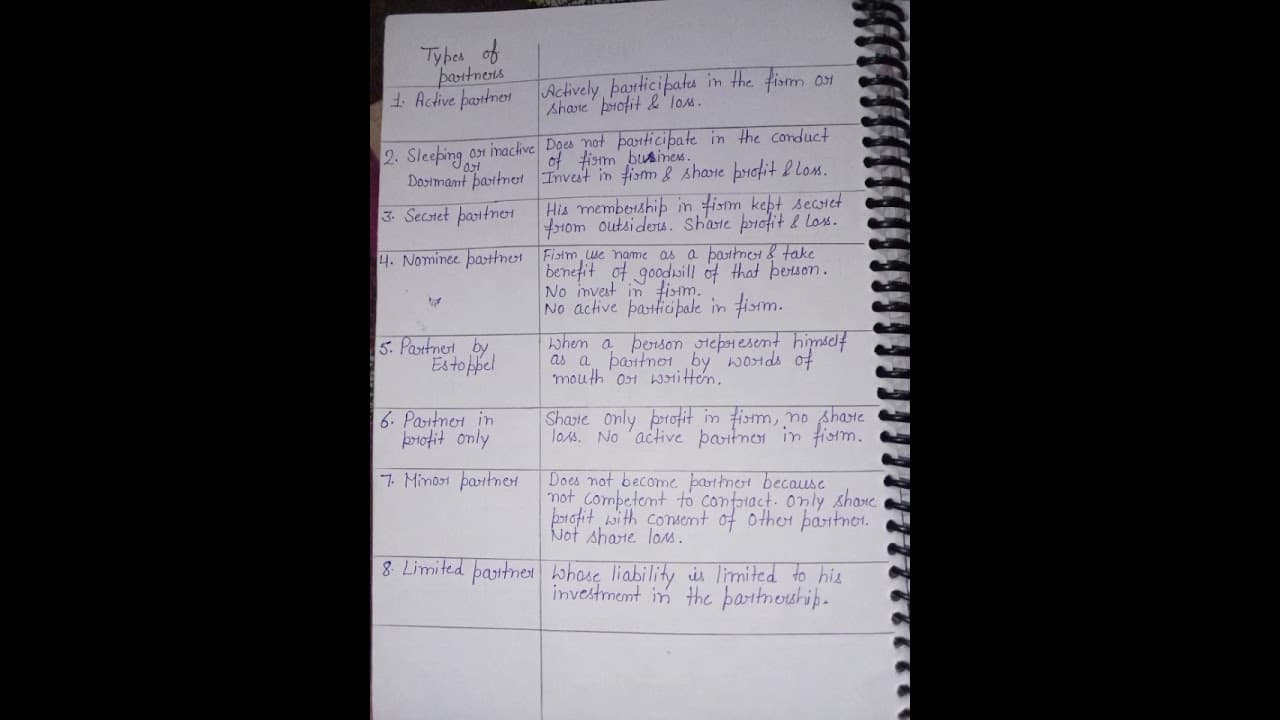 Types of
partners
1. Active partner
Actively participates in the firm or
share profit & loss.
2. Sleeping or inactive
or
Dormant partner
Does not participate in the conduct
of firm business.
Invest in firm & share profit & loss.
3. Secret partner
His membership in firm kept secret
from outsiders. Share profit & loss.
4. Nominee partner
Firm use name as a partner & take
benefit of goodwill of that person.
No invest in firm.
No active participate in firm.
5. Partner by
Estoppel
When a person represent himself
as a partner by words of
mouth or written.
6. Partner in
profit only
Share only profit in firm, no share
loss. No active partner in firm.
7. Minor partner
Does not become partner because
not competent to contract. Only share
profit with consent of other partner.
Not share loss.
8. Limited partner
Whose liability is limited to his
investment in the partnership.